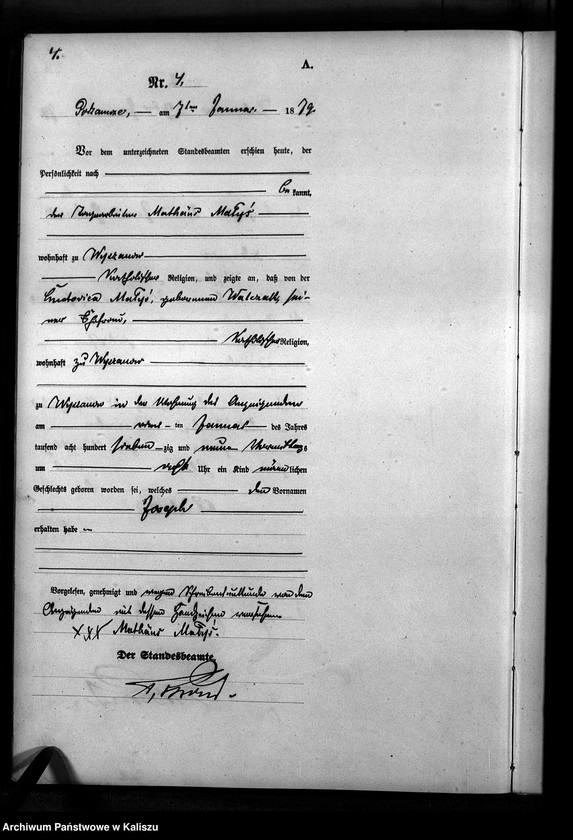 4.
A.
Nr. 4.
am 7ten Januar 1879.
Vor dem unterzeichneten Standesbeamten erschien heute, der
Persönlichkeit nach
be kannt,
der Mathäus Matyś
wohnhaft zu Wyszanow
katholischer Religion, und zeigte an, daß von der
Ludovica Matyś, geborenen sei-
ner Ehefrau,
katholischer Religion,
wohnhaft zu Wyszanow
zu Wyszanow in der Wohnung des Anzeigenden
am ten Januar des Jahres
tausend acht hundert sieben zig und neun Vormittags
um Uhr ein Kind männlichen
Geschlechts geboren worden sei, welches den Vornamen
Joseph
erhalten habe
Vorgelesen, genehmigt und wegen Schreibensunkunde von dem
Anzeigenden mit dessen Handzeichen versehen
XXX Mathäus Matyś.
Der Standesbeamte
Archiwum Państwowe w Kaliszu